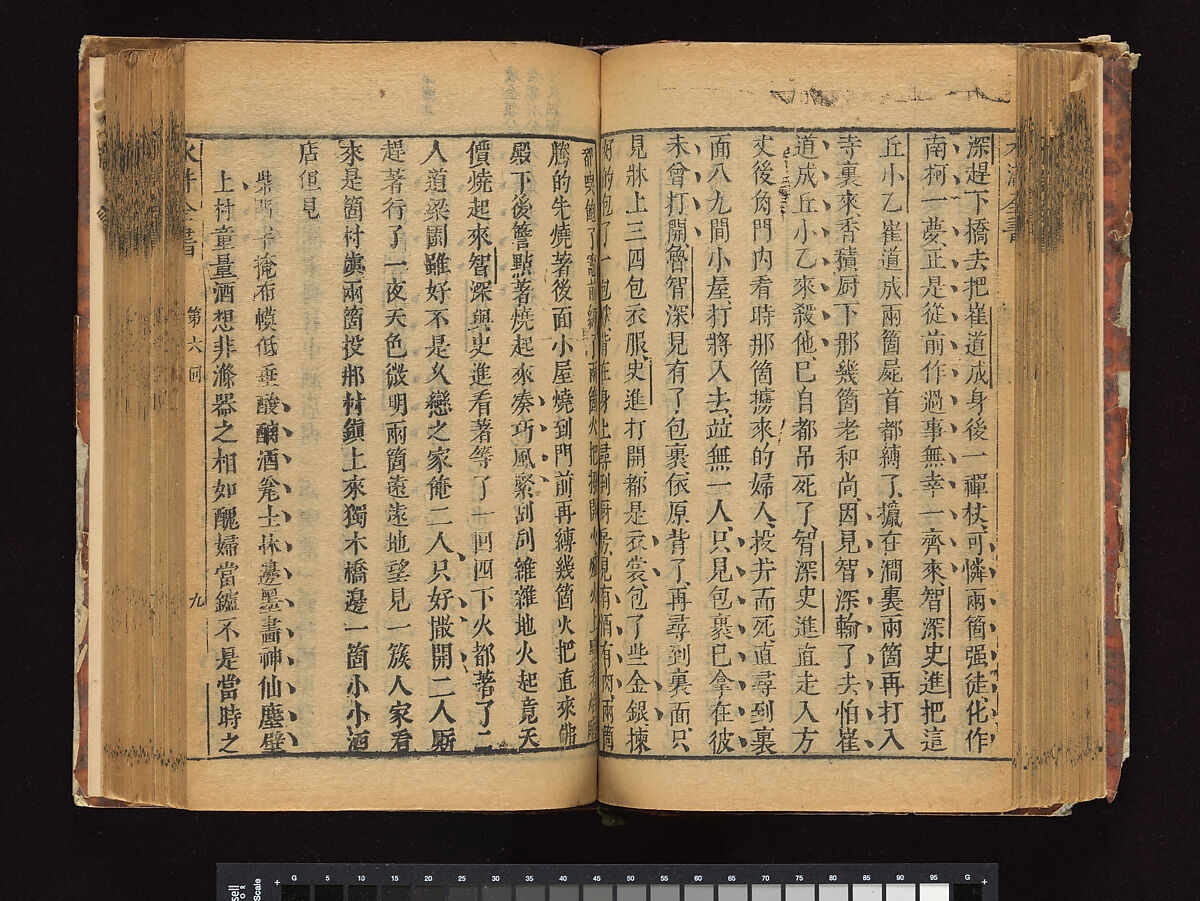 深趕下橋去把崔道成身後一禪杖可憐兩箇强徒化作
南柯一夢正是從前作過事無幸一齊來智深史進把這
丘小乙崔道成兩箇屍首都縛了攛在澗裏兩箇再打入
寺裏來香積厨下那幾箇老和尚因見智深輸了去怕崔
道成丘小乙來殺他已自都吊死了智深史進直走入方
丈後角門內看時那箇擄來的婦人投井而死直尋到裏
面八九間小屋打將入去並無一人只見包裹已拿在彼
未曾打開魯智深見有了包裹依原背了再尋到裏面只
見牀上三四包衣服史進打開都是衣裳包了些金銀揀
好的包了一包袱背在身上尋到厨房見有酒有肉兩箇
都喫飽了竈前縛了兩箇火把撥開火爐火上
騰的先燒著後面小屋燒到門前再縛幾箇火把直來佛
殿下後簷點著燒起來凑巧風緊刮刮雜雜地火起竟天
價燒起來智深與史進看著等了一回四下火都著了二
人道梁園雖好不是久戀之家俺二人只好撒開二人厮
趕著行了一夜天色微明兩箇遠遠地望見一簇人家看
來是箇村鎮兩箇投那村鎮上來獨木橋邊一箇小小酒
店但見
柴門半掩布幙低垂酸醨酒瓮土牀邊墨畫神仙塵壁
上村童量酒想非滌器之相如醜婦當鑪不是當時之
水滸全書
第六回
九
水滸全書
G 5 10 20 30 40 50 60 70 80 90 95 G
Scale